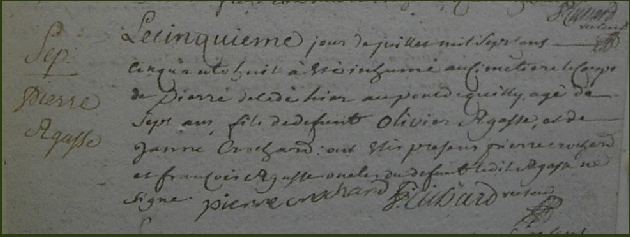 Sep
pierre
Agasse
Le cinquieme jour de juillet mil Sept cens
cinquante huit à été inhumé au cimetiere le Corps
de Pierre decedé hier au pont de quilly agé de
Sept ans, fils de defunt Olivier Agasse, et de
Janne Crochard : ont été presens pierre crochard
et françois Agasse oncles du defunt ledit Agasse ne
signe pierre crochard